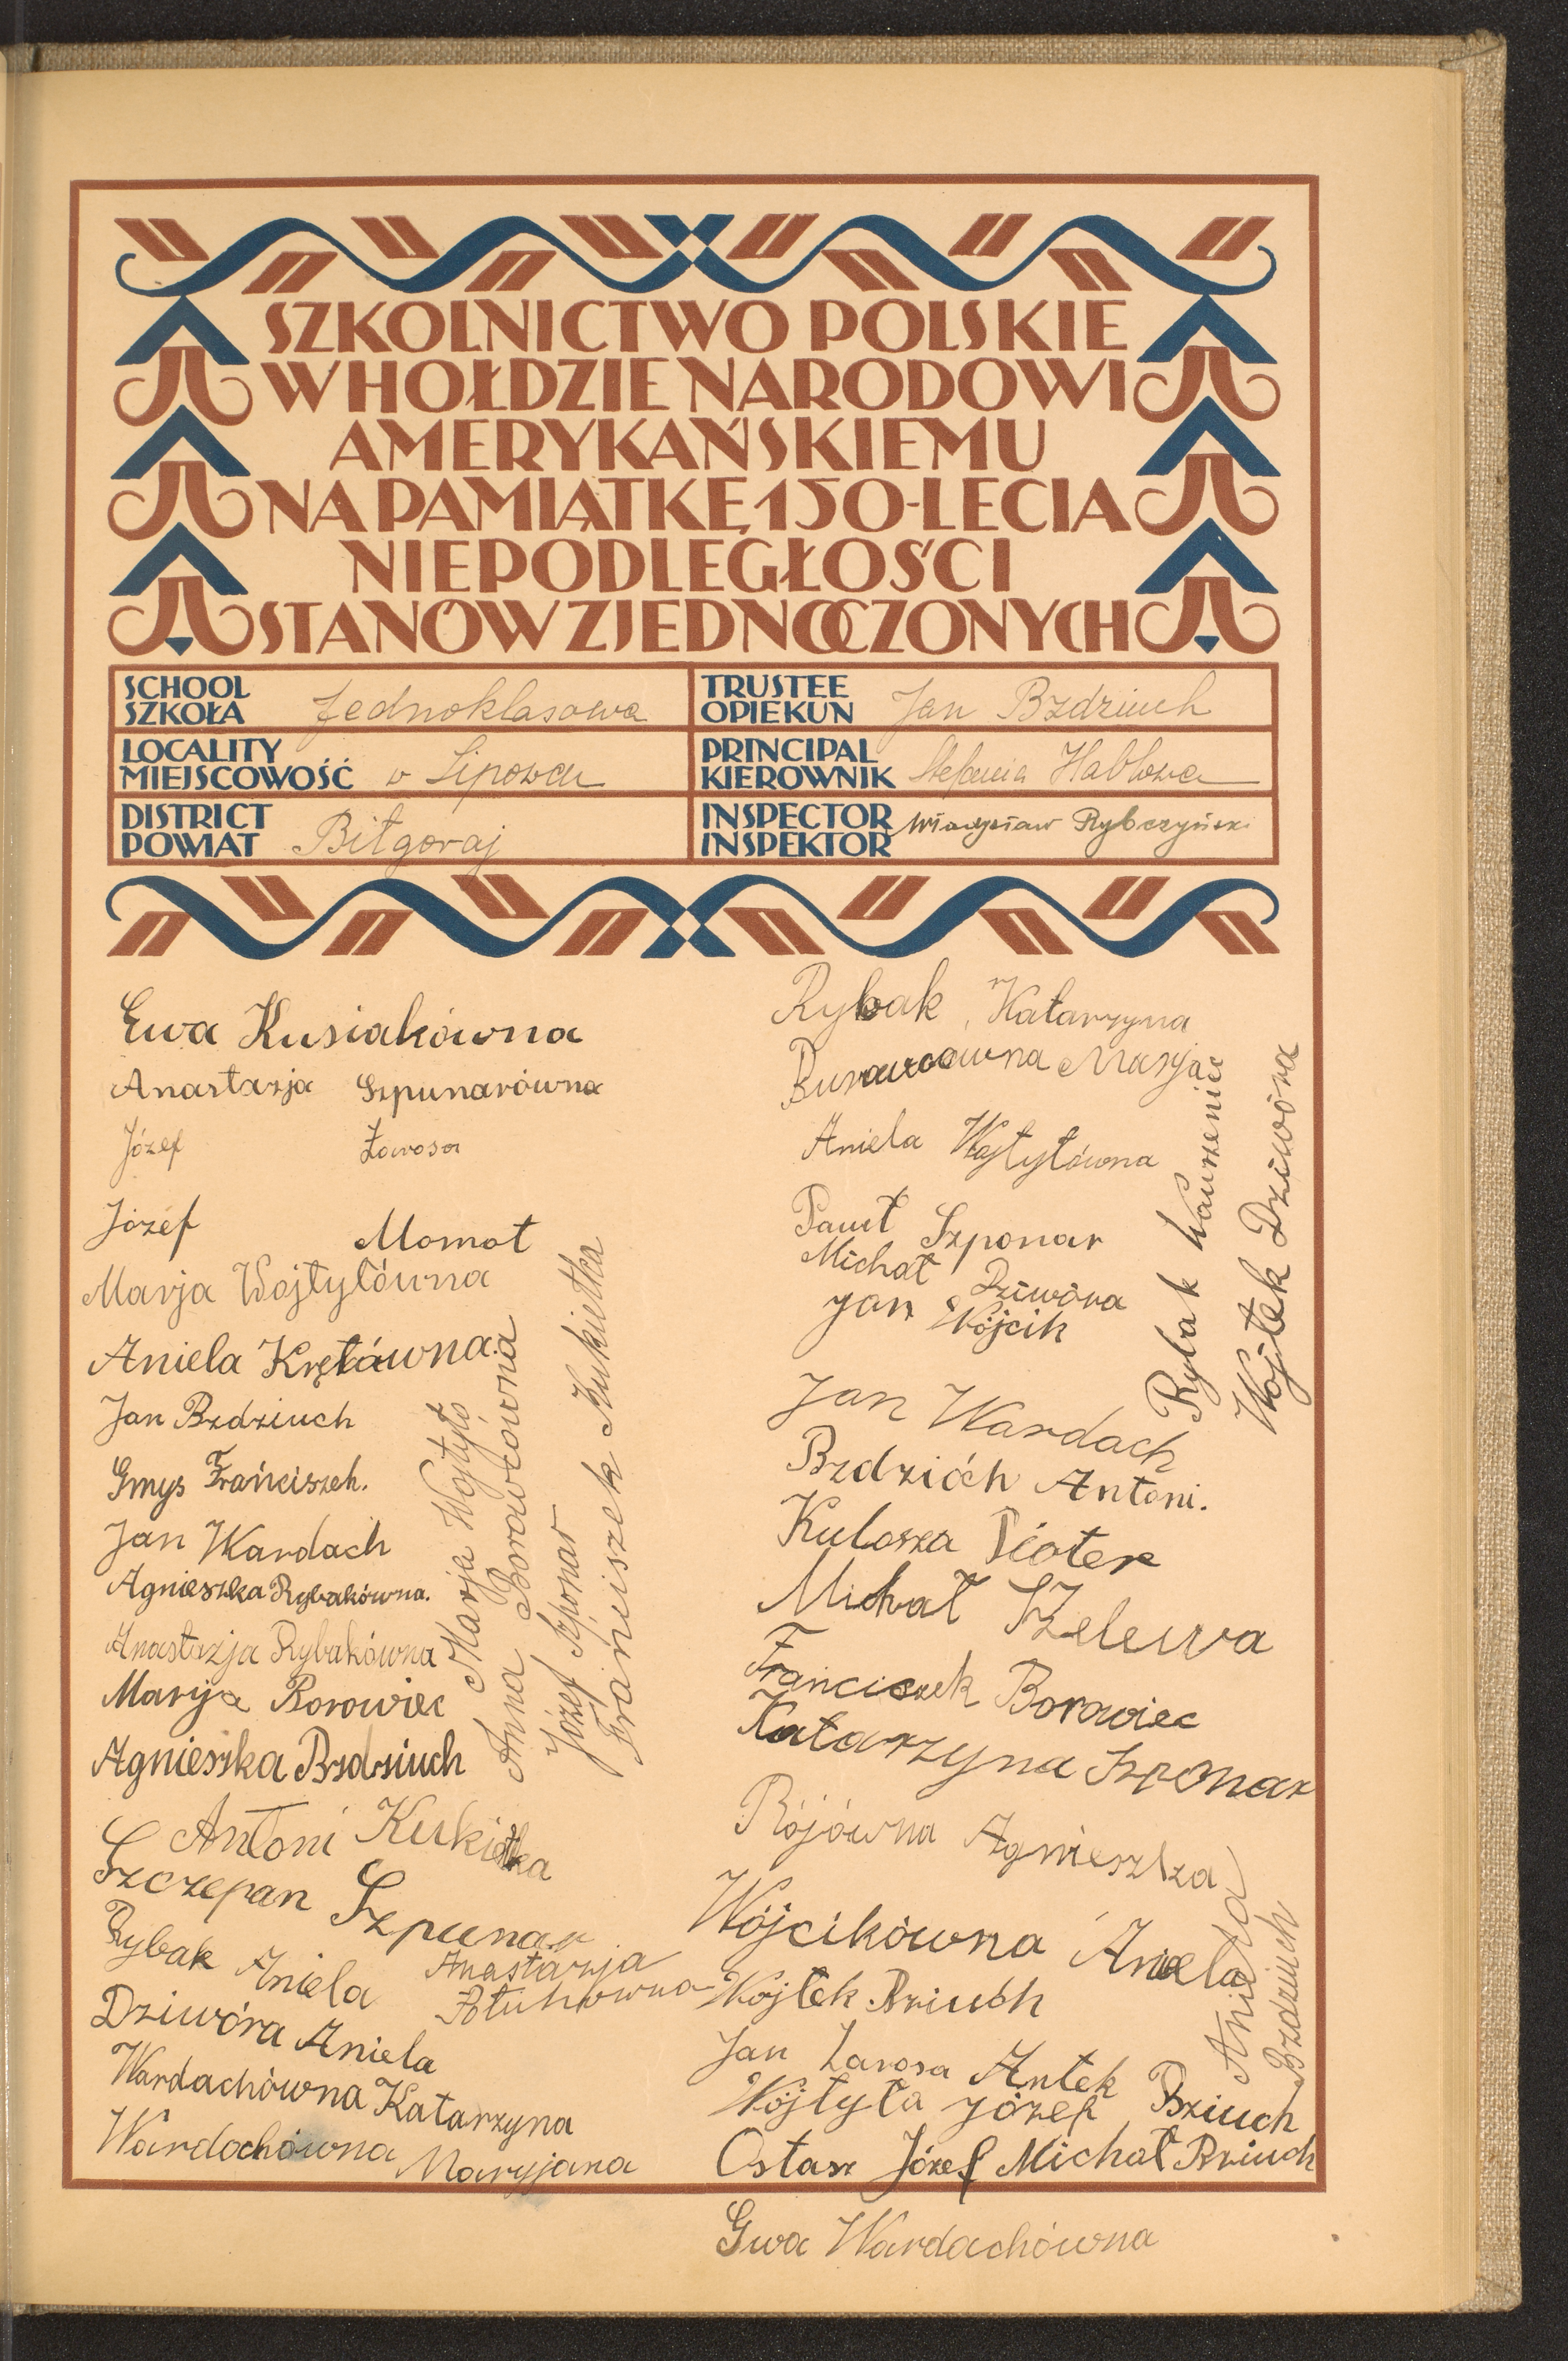 SZKOLNICTWO POLSKIE
W HOŁDZIE NARODOWI
AMERYKAŃSKIEMU
NA PAMIĄTKĘ 150-LECIA
NIEPODLEGŁOŚCI
STANÓW ZJEDNOCZONYCH
SCHOOL
SZKOŁA Jednoklasowa
TRUSTEE
OPIEKUN Jan Bzdziuch
LOCALITY
MIEJSCOWOŚĆ w Lipowcu
PRINCIPAL
KIEROWNIK Stefania
DISTRICT
POWIAT Biłgoraj
INSPECTOR
INSPEKTOR Władysław Rybczyński
Ewa Kusiakówna
Anastazja Szpunarówna
Józef Zarosa
Józef Momot
Marja Wojtyłówna
Aniela Krętówna.
Jan Bzdziuch
Gmys Frańciszek.
Jan Wardach
Agnieszka Rybakówna.
Anastazja Rybakówna
Maryja Borowiec
Agnieszka Bzdziuch
Marja Wojtyło
Anna Borowcówna
Józef Szponar
Frańciszek Kukiełka
Antoni Kukiełka
Szczepan Szpunar
Rybak Aniela
Anastazja
Dziwóra Aniela
Wardachówna Katarzyna
Wardochówna Maryjana
Rybak, Katarzyna
Maryja
Aniela Wojtyłówna
Paweł Szponar
Michał Dziwóra
Jan Wójcik
Rybak
Wojtek Dziwóra
Jan Wardach
Bzdzióch Antoni.
Kulosza Pioter
Michał Szelewa
Franciszek Borowiec
Katarzyna Szponar
Rójówna Agnieszka
Wójcikówna Aniela
Wojtek Bziuch
Aniela
Bzdziuch
Jan Zarosa Antek Bziuch
Wójtyła Józef
Ostasz Józef Michał Bziuch
Ewa Wardachówna